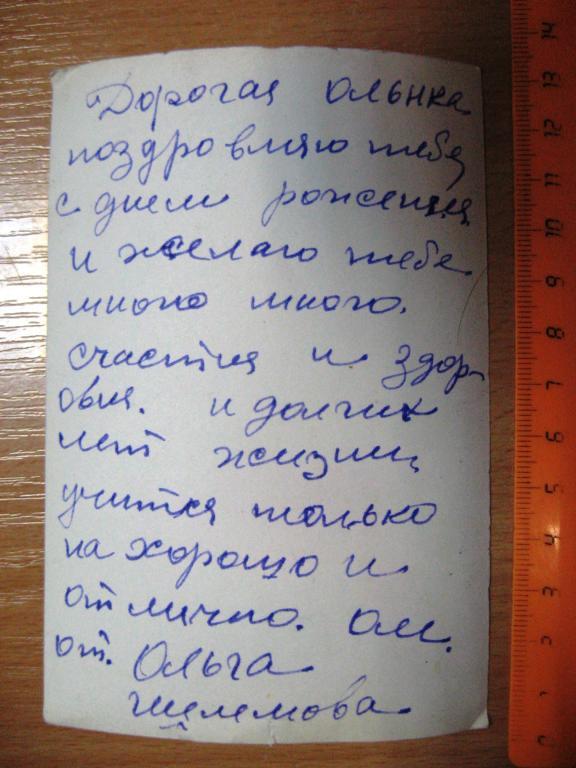 Дорогая Ольнка
поздровляю тебе
с днем рожения
и желаю тебе
много много.
счастия и здор-
овия. и долгих
лет жизни
учится только
на хорошо и
отлично. От.
от. Ольга
14
13
12
11
10
9
8
7
6
5
4
3
2
1
0